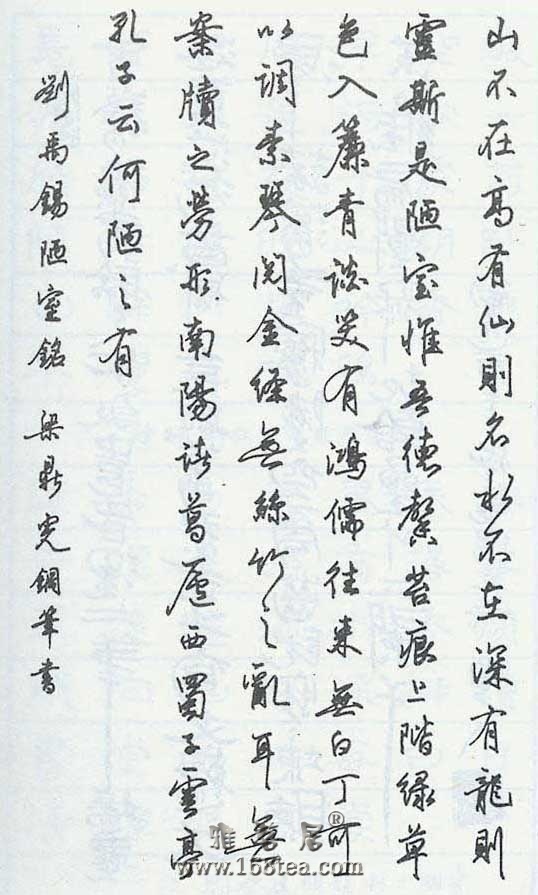 山不在高有仙則名水不在深有龍則
靈斯是陋室惟吾德馨苔痕上階緑草
色入簾青談笑有鴻儒往来無白丁可
以調素琴閱金經無絲竹之亂耳無
案牘之勞形南陽諸葛廬西蜀子雲亭
孔子云何陋之有
劉禹錫陋室銘 梁鼎光鋼筆書
雅茗居®
www.168tea.com